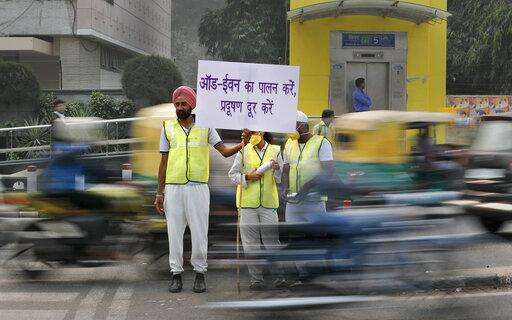 ऑड-ईवन का पालन करें,
प्रदूषण दूर करें